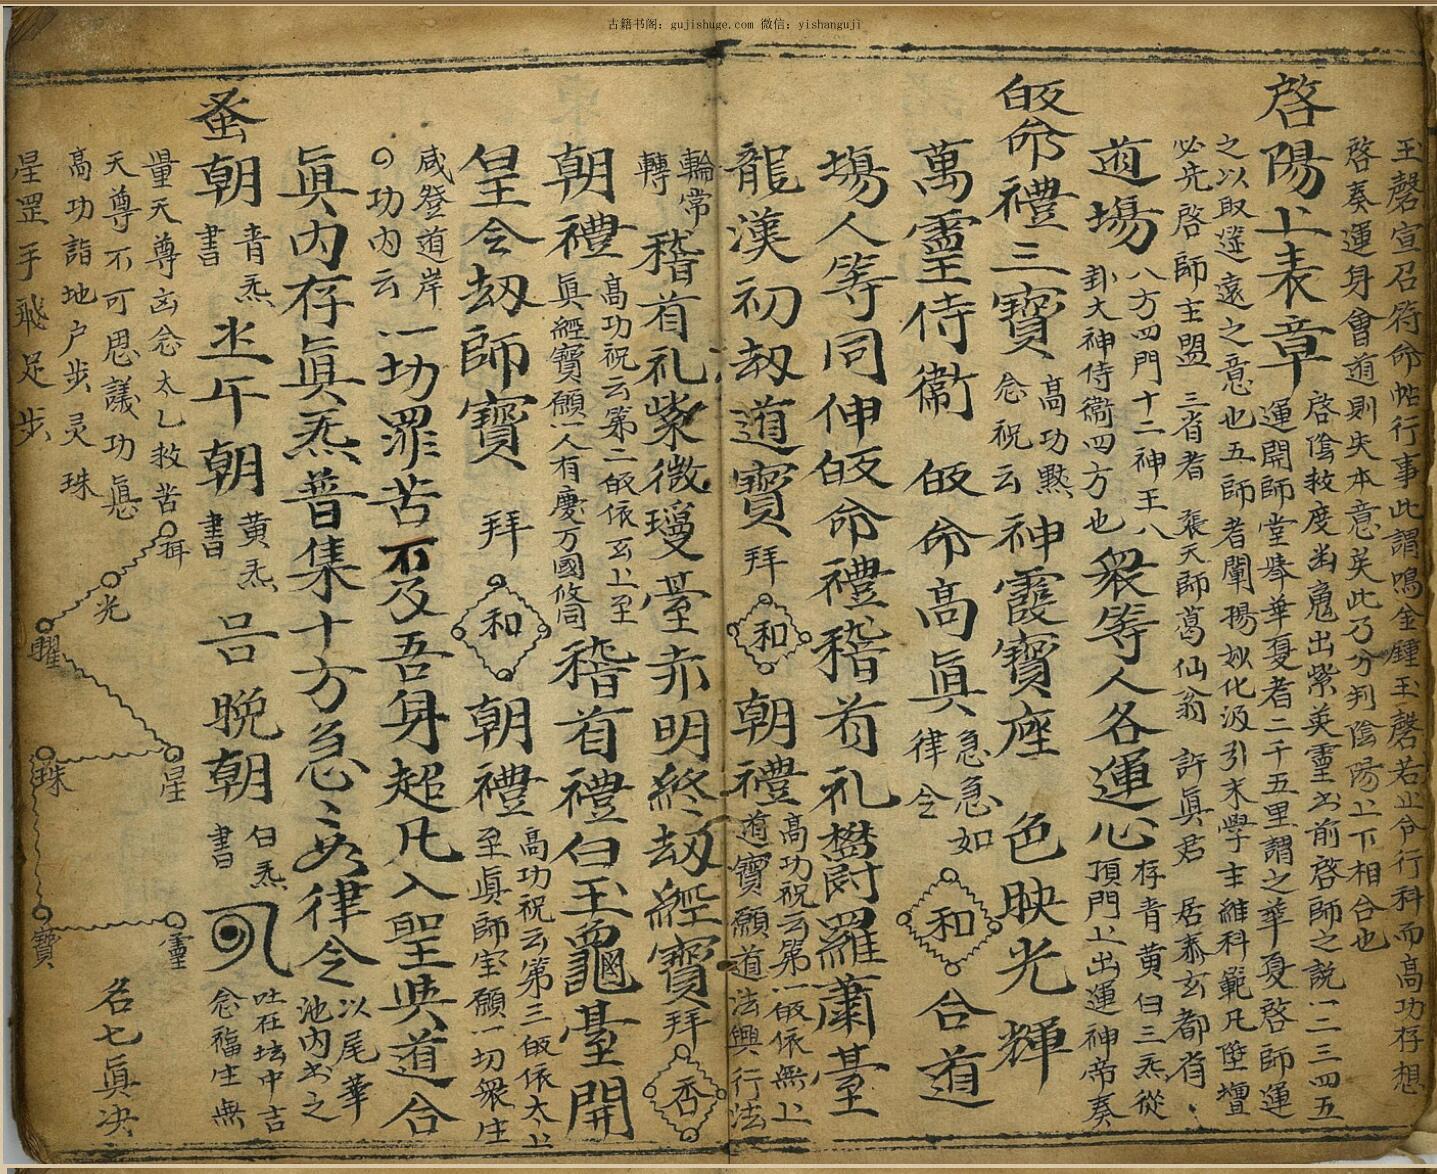 古籍书阁：gujishuge.com 微信：yishanguji
玉磬宣召符命帖行事此謂鳴金鍾玉磬若止令行科而高功存想
啓奏運身會道則失本意矣此乃分判陰陽上下相合也
啓陽上表章
啓陰救度幽鬼出紫英靈出前啓師之說一二三四五
運開師堂華夏者二千五里謂之華夏啓師運
之以取遥遠之意也五師者闡揚妙化汲引末學主維科範凡登壇
必先啓師主盟 三省者 張天師葛仙翁 許眞君 居泰玄都省
道場
八方四門十二神王八
卦大神侍衞四方也
衆等人各運心
存青黄白三炁從
頂門上出運神帝奏
皈命禮三寶
高功默
念祝云
神霞寶座 色映光輝
萬靈侍衞 皈命高眞
急急如
律令
和
合道
場人等同伸皈命禮稽首礼欝罗蕭臺
龍漢初刼道寶
拜
和
朝禮
高功祝云第一皈依無上
道寶願道法興行法
輪常
轉
稽首礼紫微
臺赤明終刼經寶
拜
香
朝禮
高功祝云第二皈依玄上至
眞經寶願人有慶万國攸同
稽首禮白玉龜臺開
皇令刼師寶
拜
和
朝禮
高功祝云第三皈依太上
至眞師宝願一切衆生
咸登道岸
功内云
一切罪苦不及吾身超凡入聖與道合
眞内存眞炁普集十方急々如律令
以尾華
池内出之
蚤朝
青炁
書
午朝
黄炁
書
晚朝
白炁
書
吐在坛中吉
念福生無
量天尊 念太乙救苦
天尊不可思議功惪
高功詣地户步灵珠
星罡手飛足步
光
珠
星
寶
靈
名七眞决